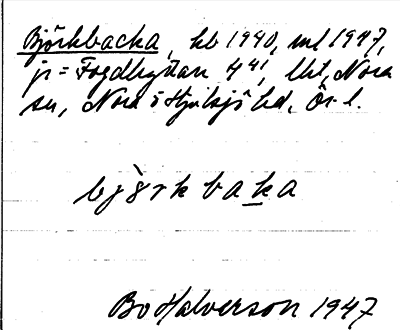 Björkbacka, hb 1940, ml 1947,
jr = Fogdhyttan 4⁴¹, lht, Nora
sn, Nora o Hjulsjö hd, Ör. l.
bjö̀rkbaka
Bo Halverson 1947